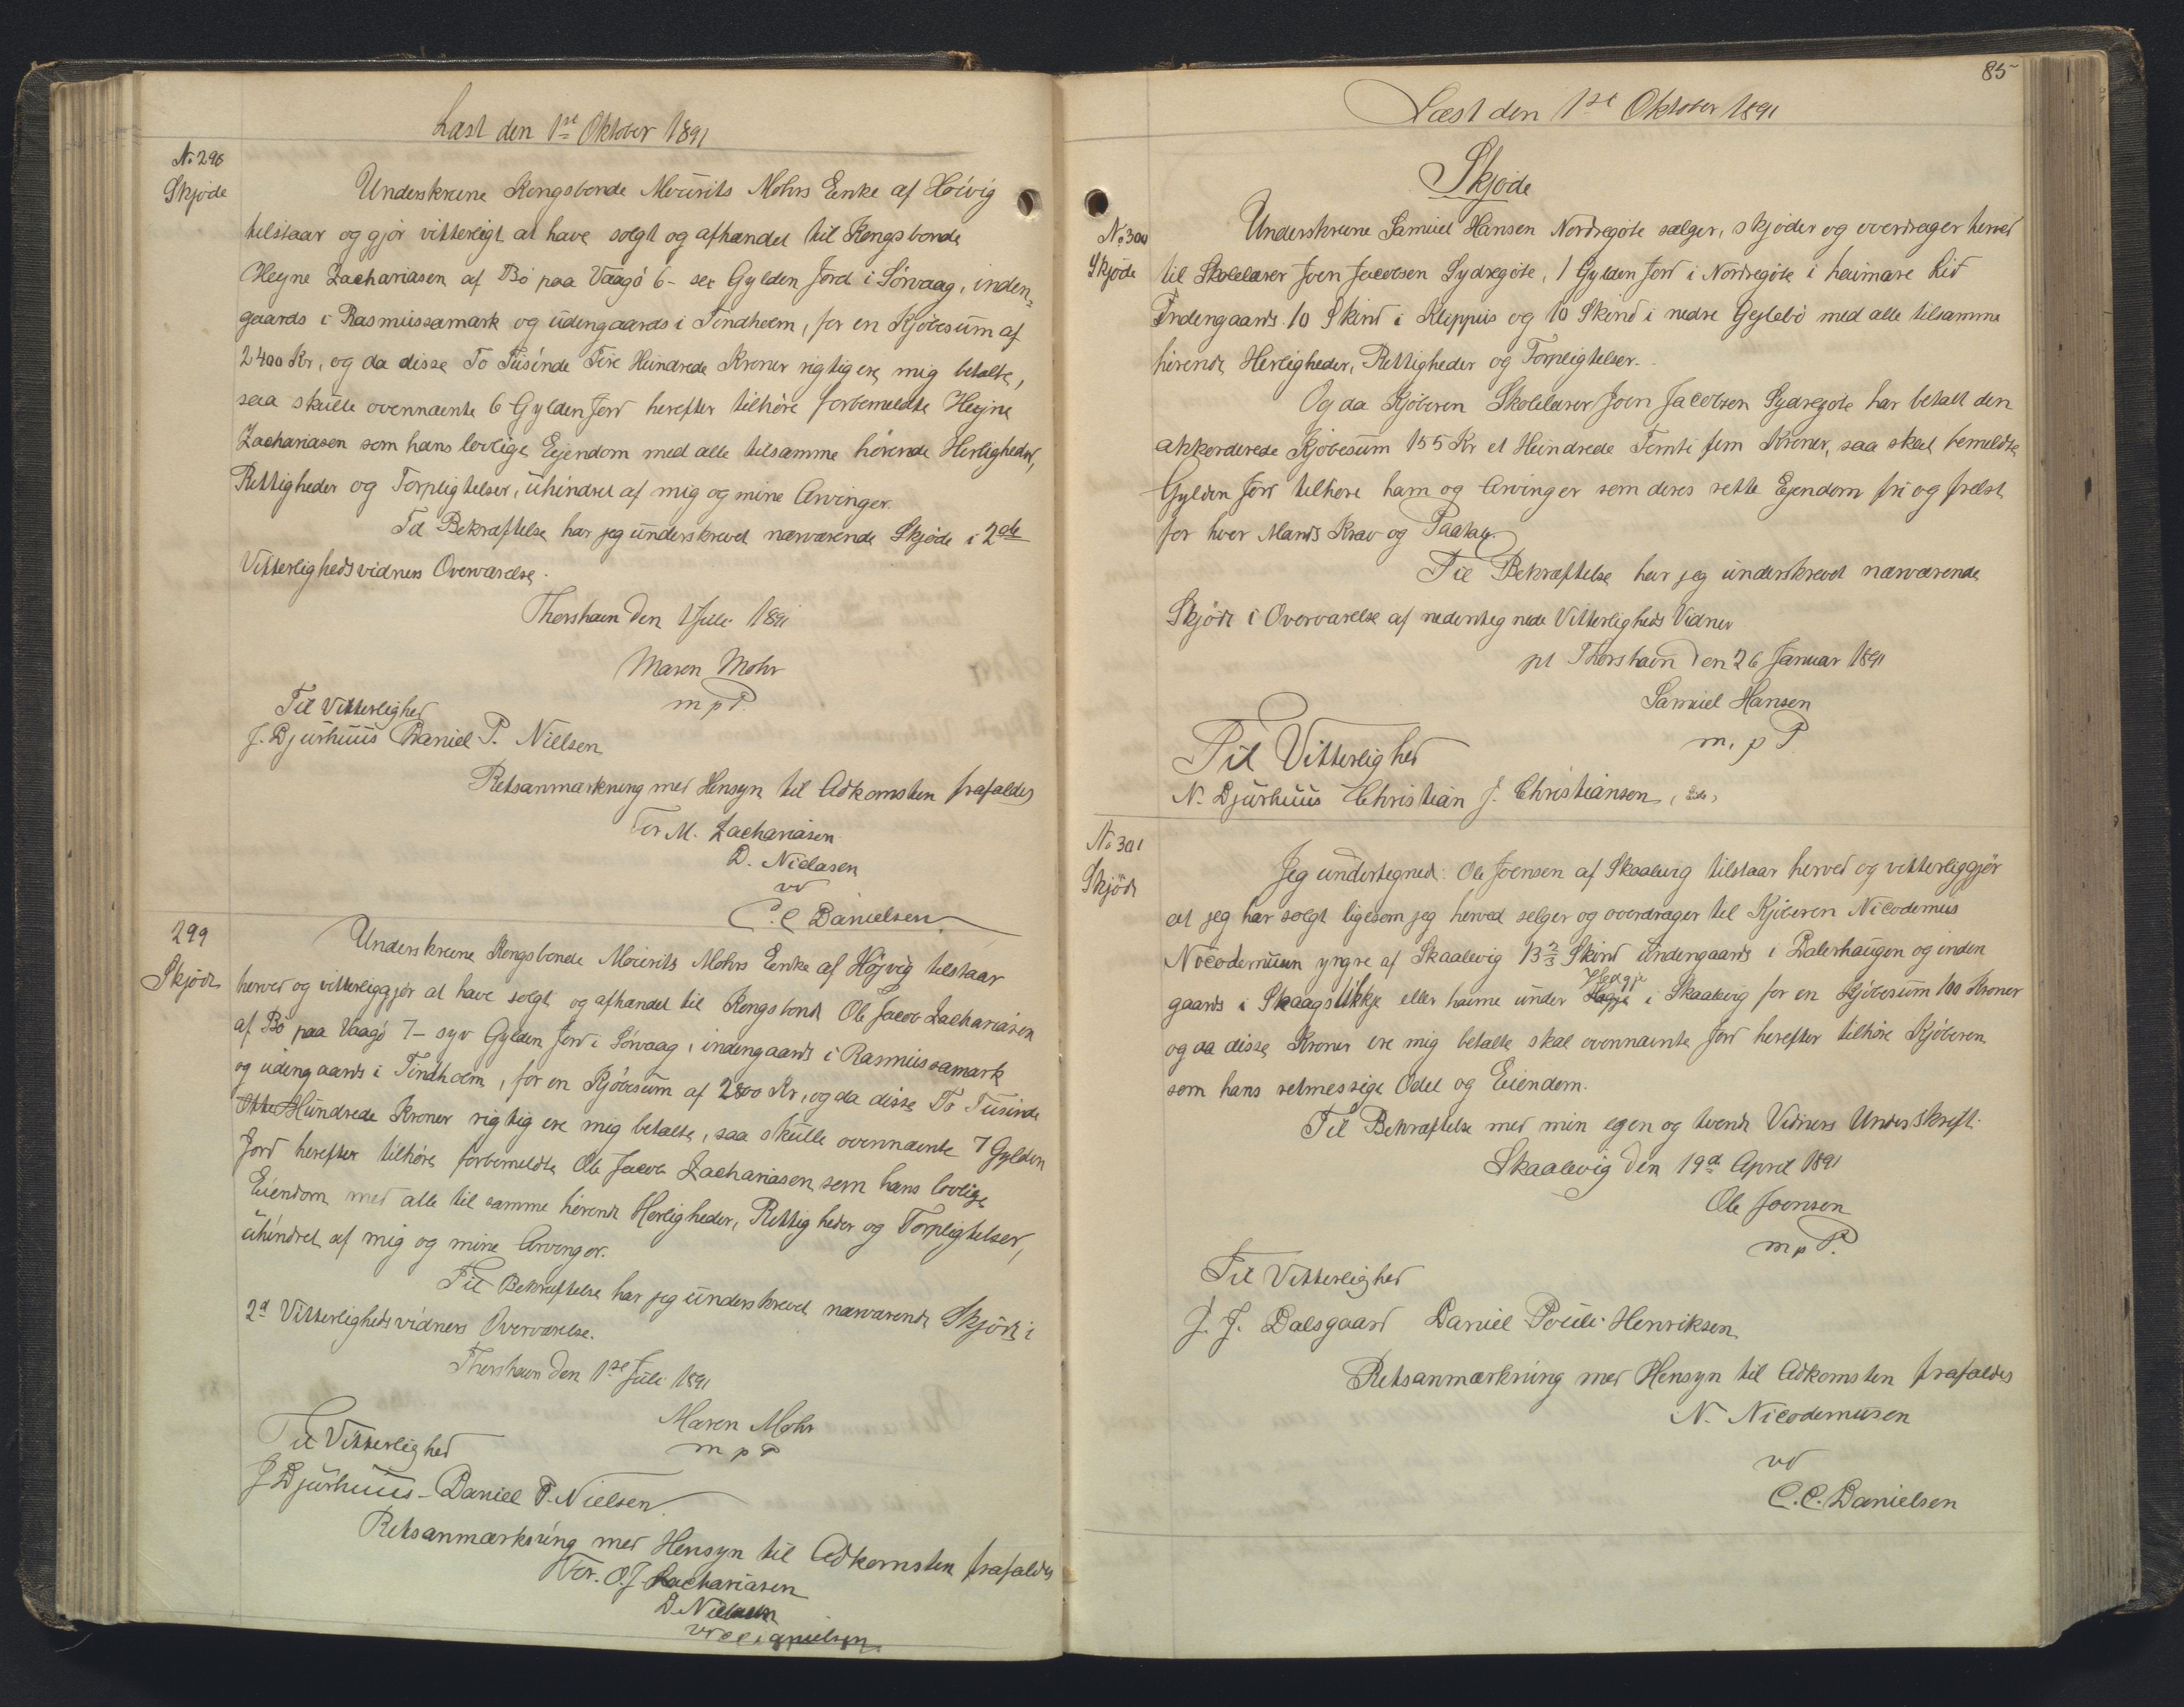 Læst den 1st Oktober 1891
No 298
Skjøde
Underskrevne Kongsbonde Mourits Mohrs Enke af Hoivig
tilstaar og gjør vitterligt at have solgt og afhændet til Kongsbonde
Hejne Zachariasen af Bø paa Vaagø 6 - sex Gylden Jord i Sørvaag, inden-
gaards i Rasmussamark og udengaards i Tindholm, for en Kjøbesum af
2400 Kr, og da disse To Tusinde Fire Hundrede Kroner rigtig ere mig betalte,
saa skulle ovennævnte 6 Gylden Jord herefter tilhøre forbemeldte Hejne
Zachariasen som hans lovlige Ejendom med alle tilsamme hørende Herligheder,
Rettigheder og Forpligtelser, uhindret af mig og mine Arvinger.
Til Bekræftelse har jeg underskrevet nærværende Skjøde i 2de
Vitterlighedsvidners Overværelse.
Thorshavn den 1 Juli 1891
Maren Mohr
m p P.
Til Vitterlighed
J. Djurhuus Daniel P. Nielsen
Retsanmærkning med Hensyn til Adkomsten frafaldes
For M. Zachariasen
D. Niclasen
vd
C. C Danielsen
299
Skjøde
Underskrevne Kongsbonde Mourits Mohrs Enke af Højvig tilstaar
herved og vitterliggjør at have solgt og afhændet til Kongsbonde Ole Jacob Zachariasen
af Bø paa Vaagø 7 - syv Gylden Jord i Sørvaag, indengaards i Rasmussamark
og udengaards i Tindholm, for en Kjøbesum af 2800 Kr, og da disse To Tusinde
Otte Hundrede Kroner rigtig ere mig betalte, saa skulle ovennævnte 7 Gylden
Jord herefter tilhøre forbemeldte Ole Jacob Zachariasen som hans lovlige
Eiendom med alle til samme hørende Herligheder, Rettigheder og Forpligtelser,
uhindret af mig og mine Arvinger.
Til Bekræftelse har jeg underskrevet nærværende Skjøde i
2d Vitterlighedsvidners Overværelse.
Thorshavn den 1st Juli 1891
Maren Mohr
m p P
Til Vitterlighed
J Djurhuus - Daniel P. Nielsen
Retsanmærkning med Hensyn til Adkomsten frafaldes
For. O. J. Zachariasen
D. Niclasen
vd C C Danielsen
85
Læst den 1st Oktober 1891
Skjøde
No 300
Skjøde
Underskrevne Samuel Hansen Nordregøte sælger, skjøder og overdrager herved
til Skolelærer Joen Jacobsen Sydregøte, 1 Gylden Jord i Nordregøte i heimare Lid
Indengaards 10 Skind i Klippus og 10 Skind i nedre Gejlebø med alle tilsamme
hørende Herligheder, Rettigheder og Forpligtelser.
Og da Kjøberen Skolelærer Joen Jacobsen Sydregøte har betalt den
akkorderede Kjøbesum 155 Kr et Hundrede Femti fem Kroner, saa skal bemeldte
Gylden Jord tilhøre ham og Arvinger som deres rette Ejendom fri og frelst
for hver Mands Krav og Paatale.
Til Bekræftelse har jeg underskrevet nærværende
Skjøde i Overværelse af nedentegnede Vitterligheds Vidner
pt Thorshavn den 26 Januar 1891
Samuel Hansen
m. p P
Til Vitterlighed
N. Djurhuus Christian J. Christiansen,
No 301
Skjøde
Jeg undertegnede: Ole Joensen af Skaalevig tilstaar herved og vitterliggjør
at jeg har solgt ligesom jeg herved selger og overdrager til Kjøberen Nicodemus
Nicodemusen yngre af Skaalevig 13 2/3 Skind Undengaards i Dalerhaugen og inden
gaards i Skaagslikkje eller haime under Hedgje i Skaalevig for en Kjøbesum 100 Kroner
og da disse Kroner ere mig betalte skal ovennævnte Jord herefter tilhøre Kjøberen
som hans retmessige Odel og Eiendom.
Til Bekræftelse med min egen og tvende Vidners Underskrift.
Skaalevig den 19d April 1891
Ole Joensen
m p P.
Til Vitterlighed
J. J. Dalsgaard Daniel Pouli Henriksen
Retsanmærkning med Hensyn til Adkomsten frafaldes
N. Nicodemusen
vd
C. C. Danielsen